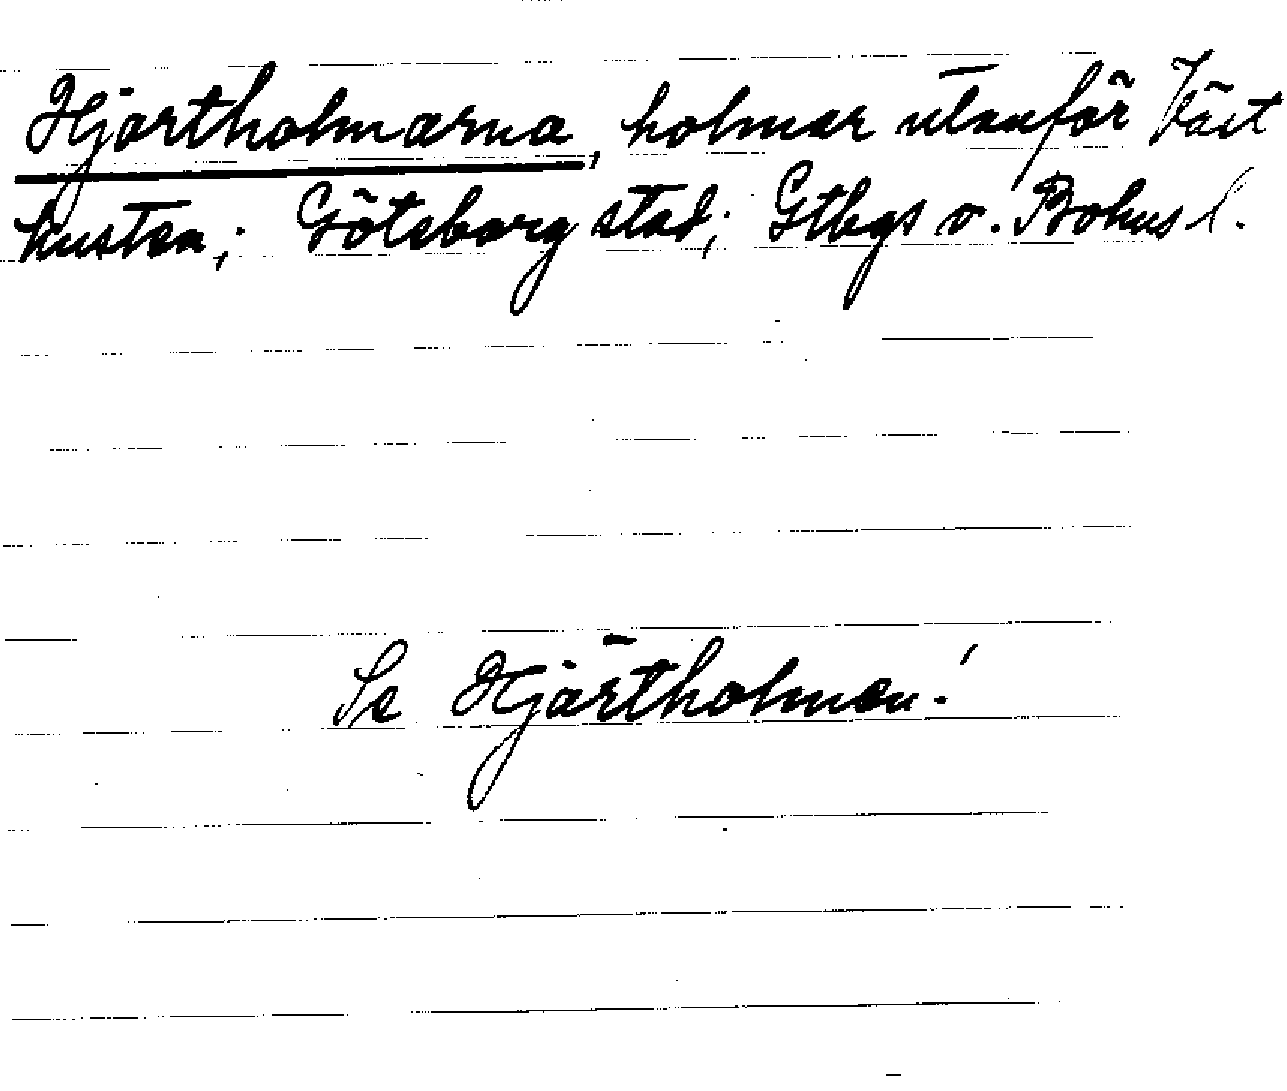 Hjärtholmarna, holmar utanför Väst
kusten; Göteborg stad; Gtbgs o. Bohus l.
Se Hjärtholmen!